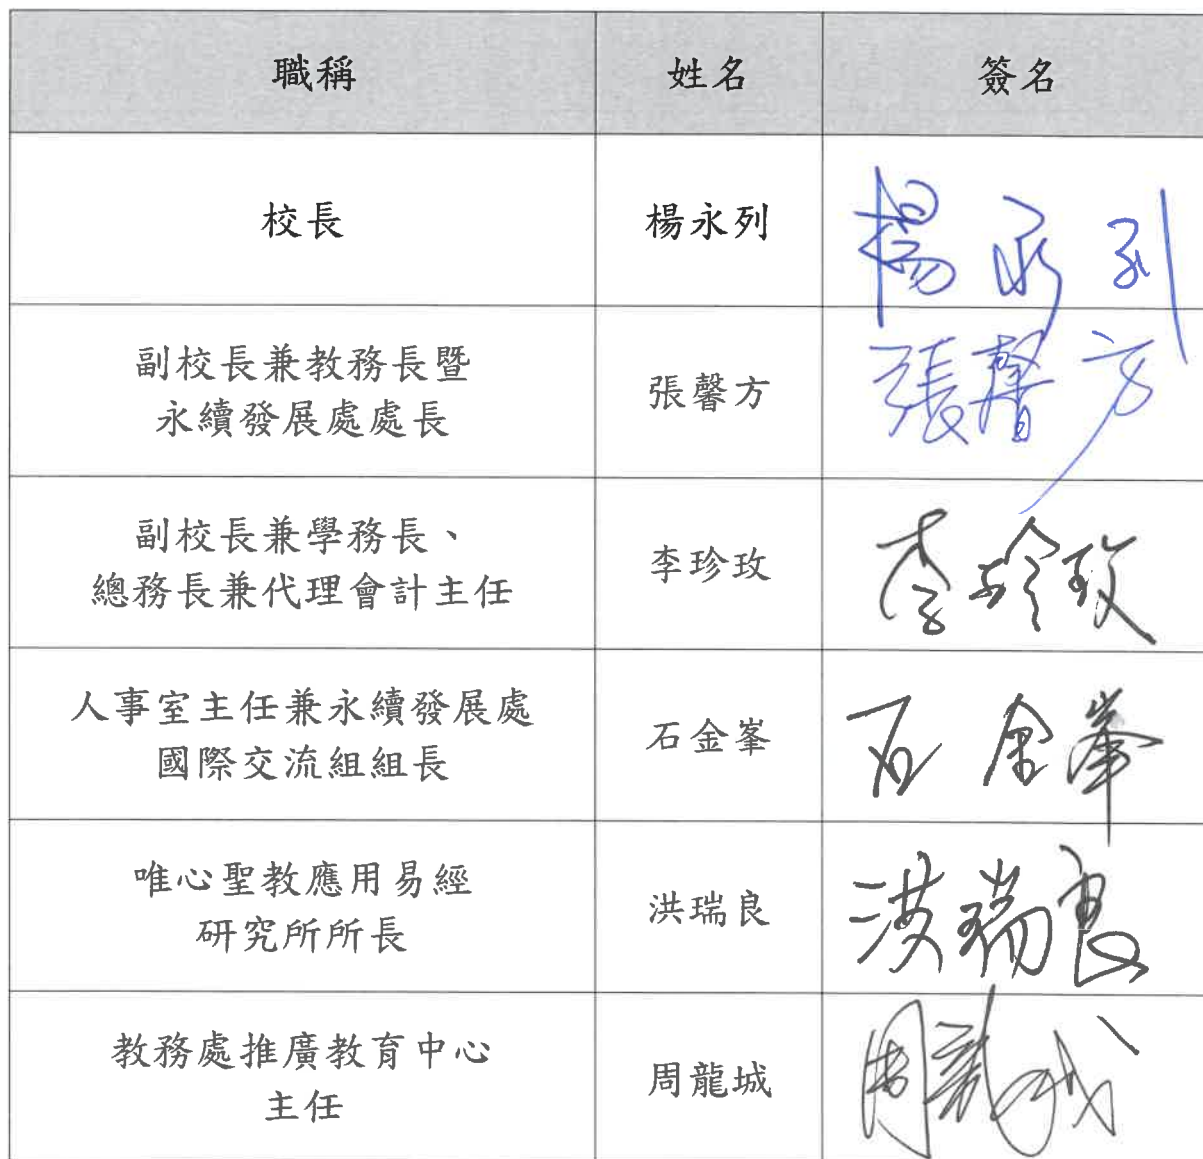 職稱 姓名 簽名
校長 楊永列 楊永列
副校長兼教務長暨
永續發展處處長 張馨方 張馨方
副校長兼學務長、
總務長兼代理會計主任 李珍玫 李珍玫
人事室主任兼永續發展處
國際交流組組長 石金峯 石金峯
唯心聖教應用易經
研究所所長 洪瑞良 洪瑞良
教務處推廣教育中心
主任 周龍城 周龍城